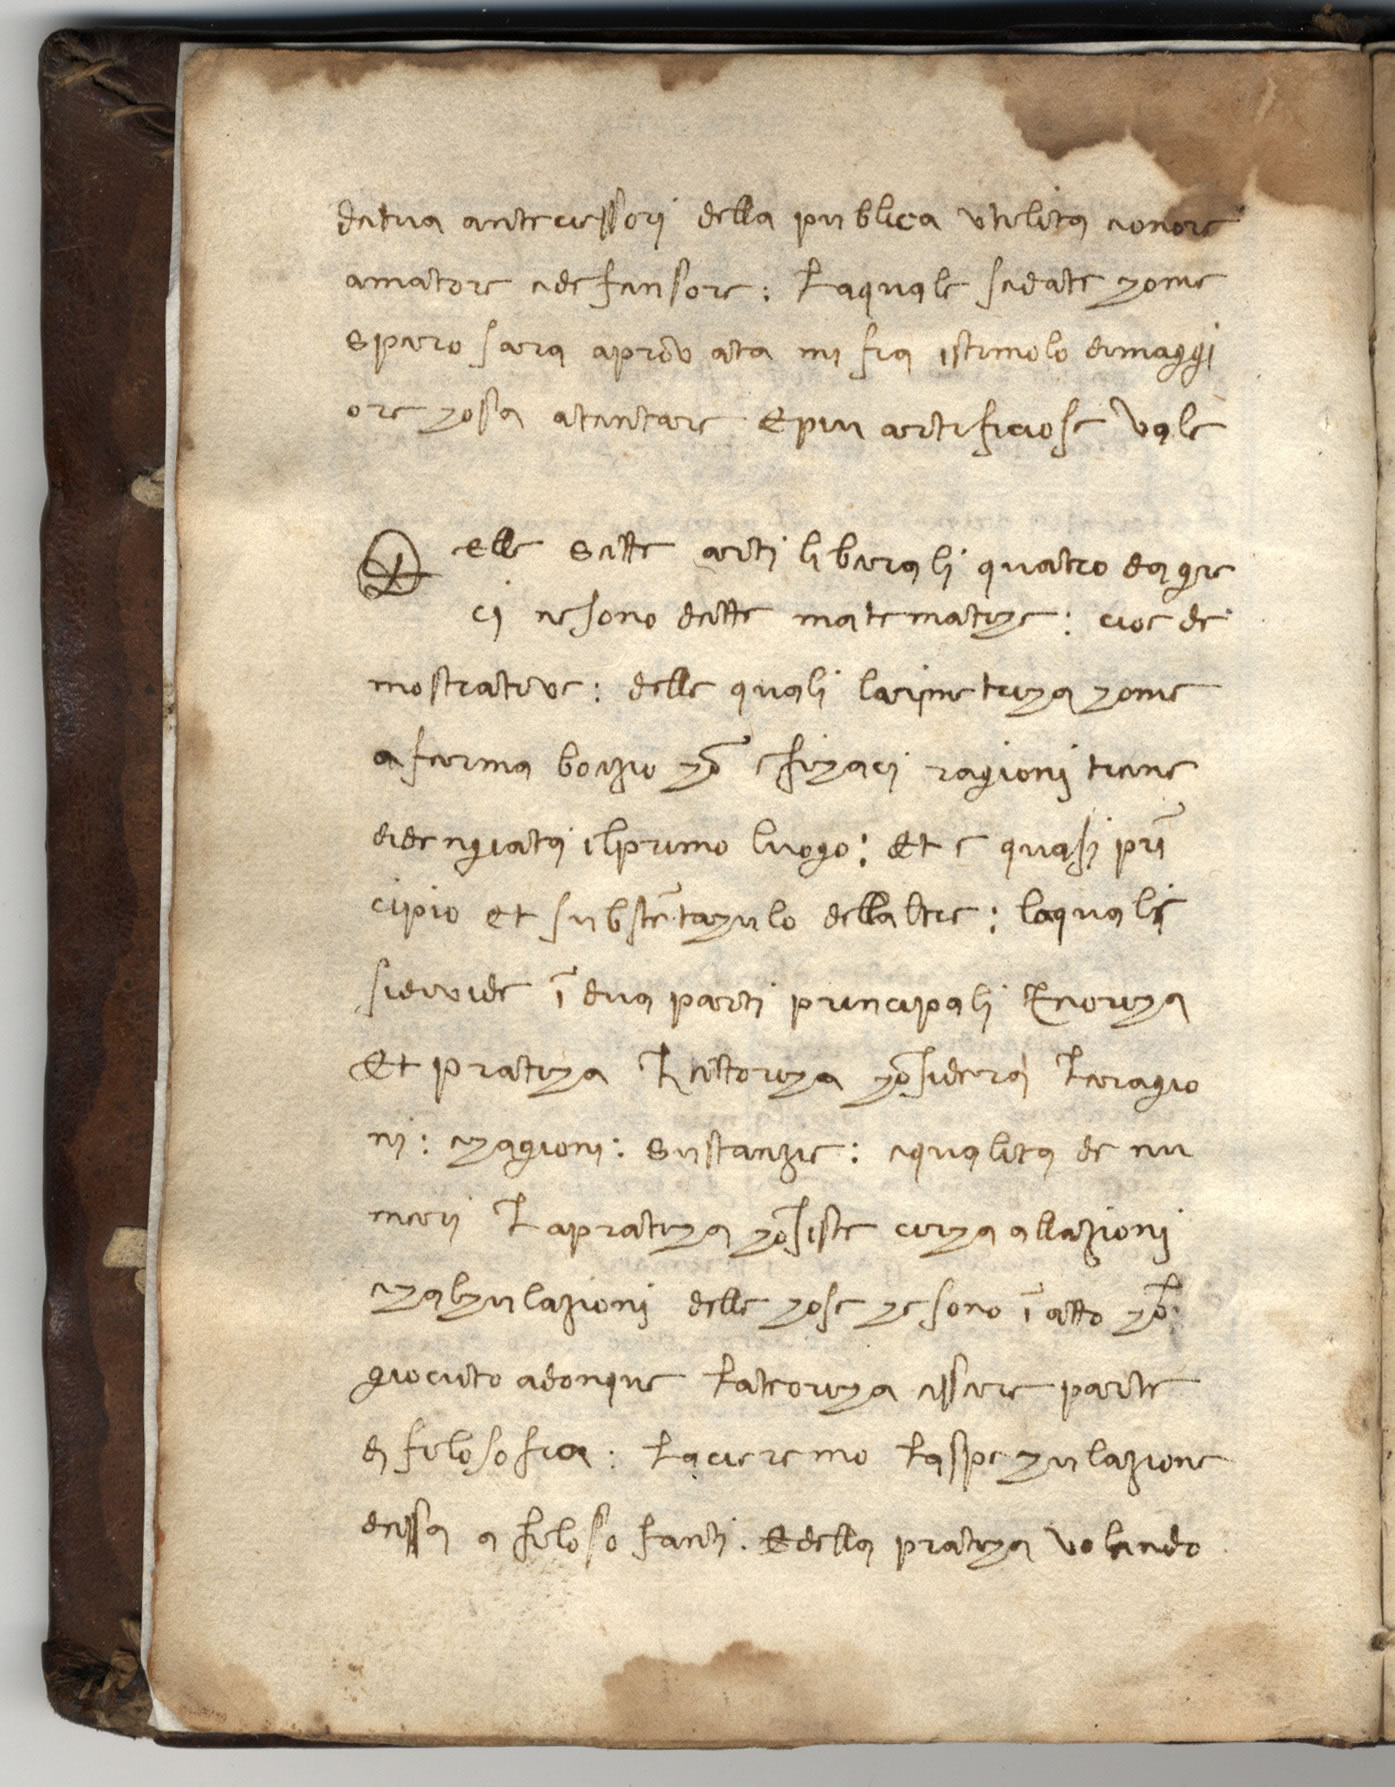 deitua anteciessori della publica utilita eonore
amatore edefensore: Laquale sedate come
spero sara aprovata mi fia istimolo dimaggi
ore cosa atentare E piu artificiose Vale
Delle sette arti liberali quatro dagre
ci nesono dette matematice: cioe de
mostrative: delle quali larimetrica come
aferma boezio cō eficaci ragioni tiene
didengiata ilprimo luogo: Et e quasi prī
cipio et substētaculo dellaltre: laquale
sidivide ī dua parti principali Teorica
Et pratica La teorica cōsidera Le ragio
ni: ecagioni: sustanzie: equalita de nu
meri La pratica cōsiste circa allazioni
ecalculazioni delle cose che sono ī atto cō
giocuto adonque Lateorica essere parte
di filosofia: Lacieremo Laspeculazione
deessa a filosofanti. Edella pratica volendo